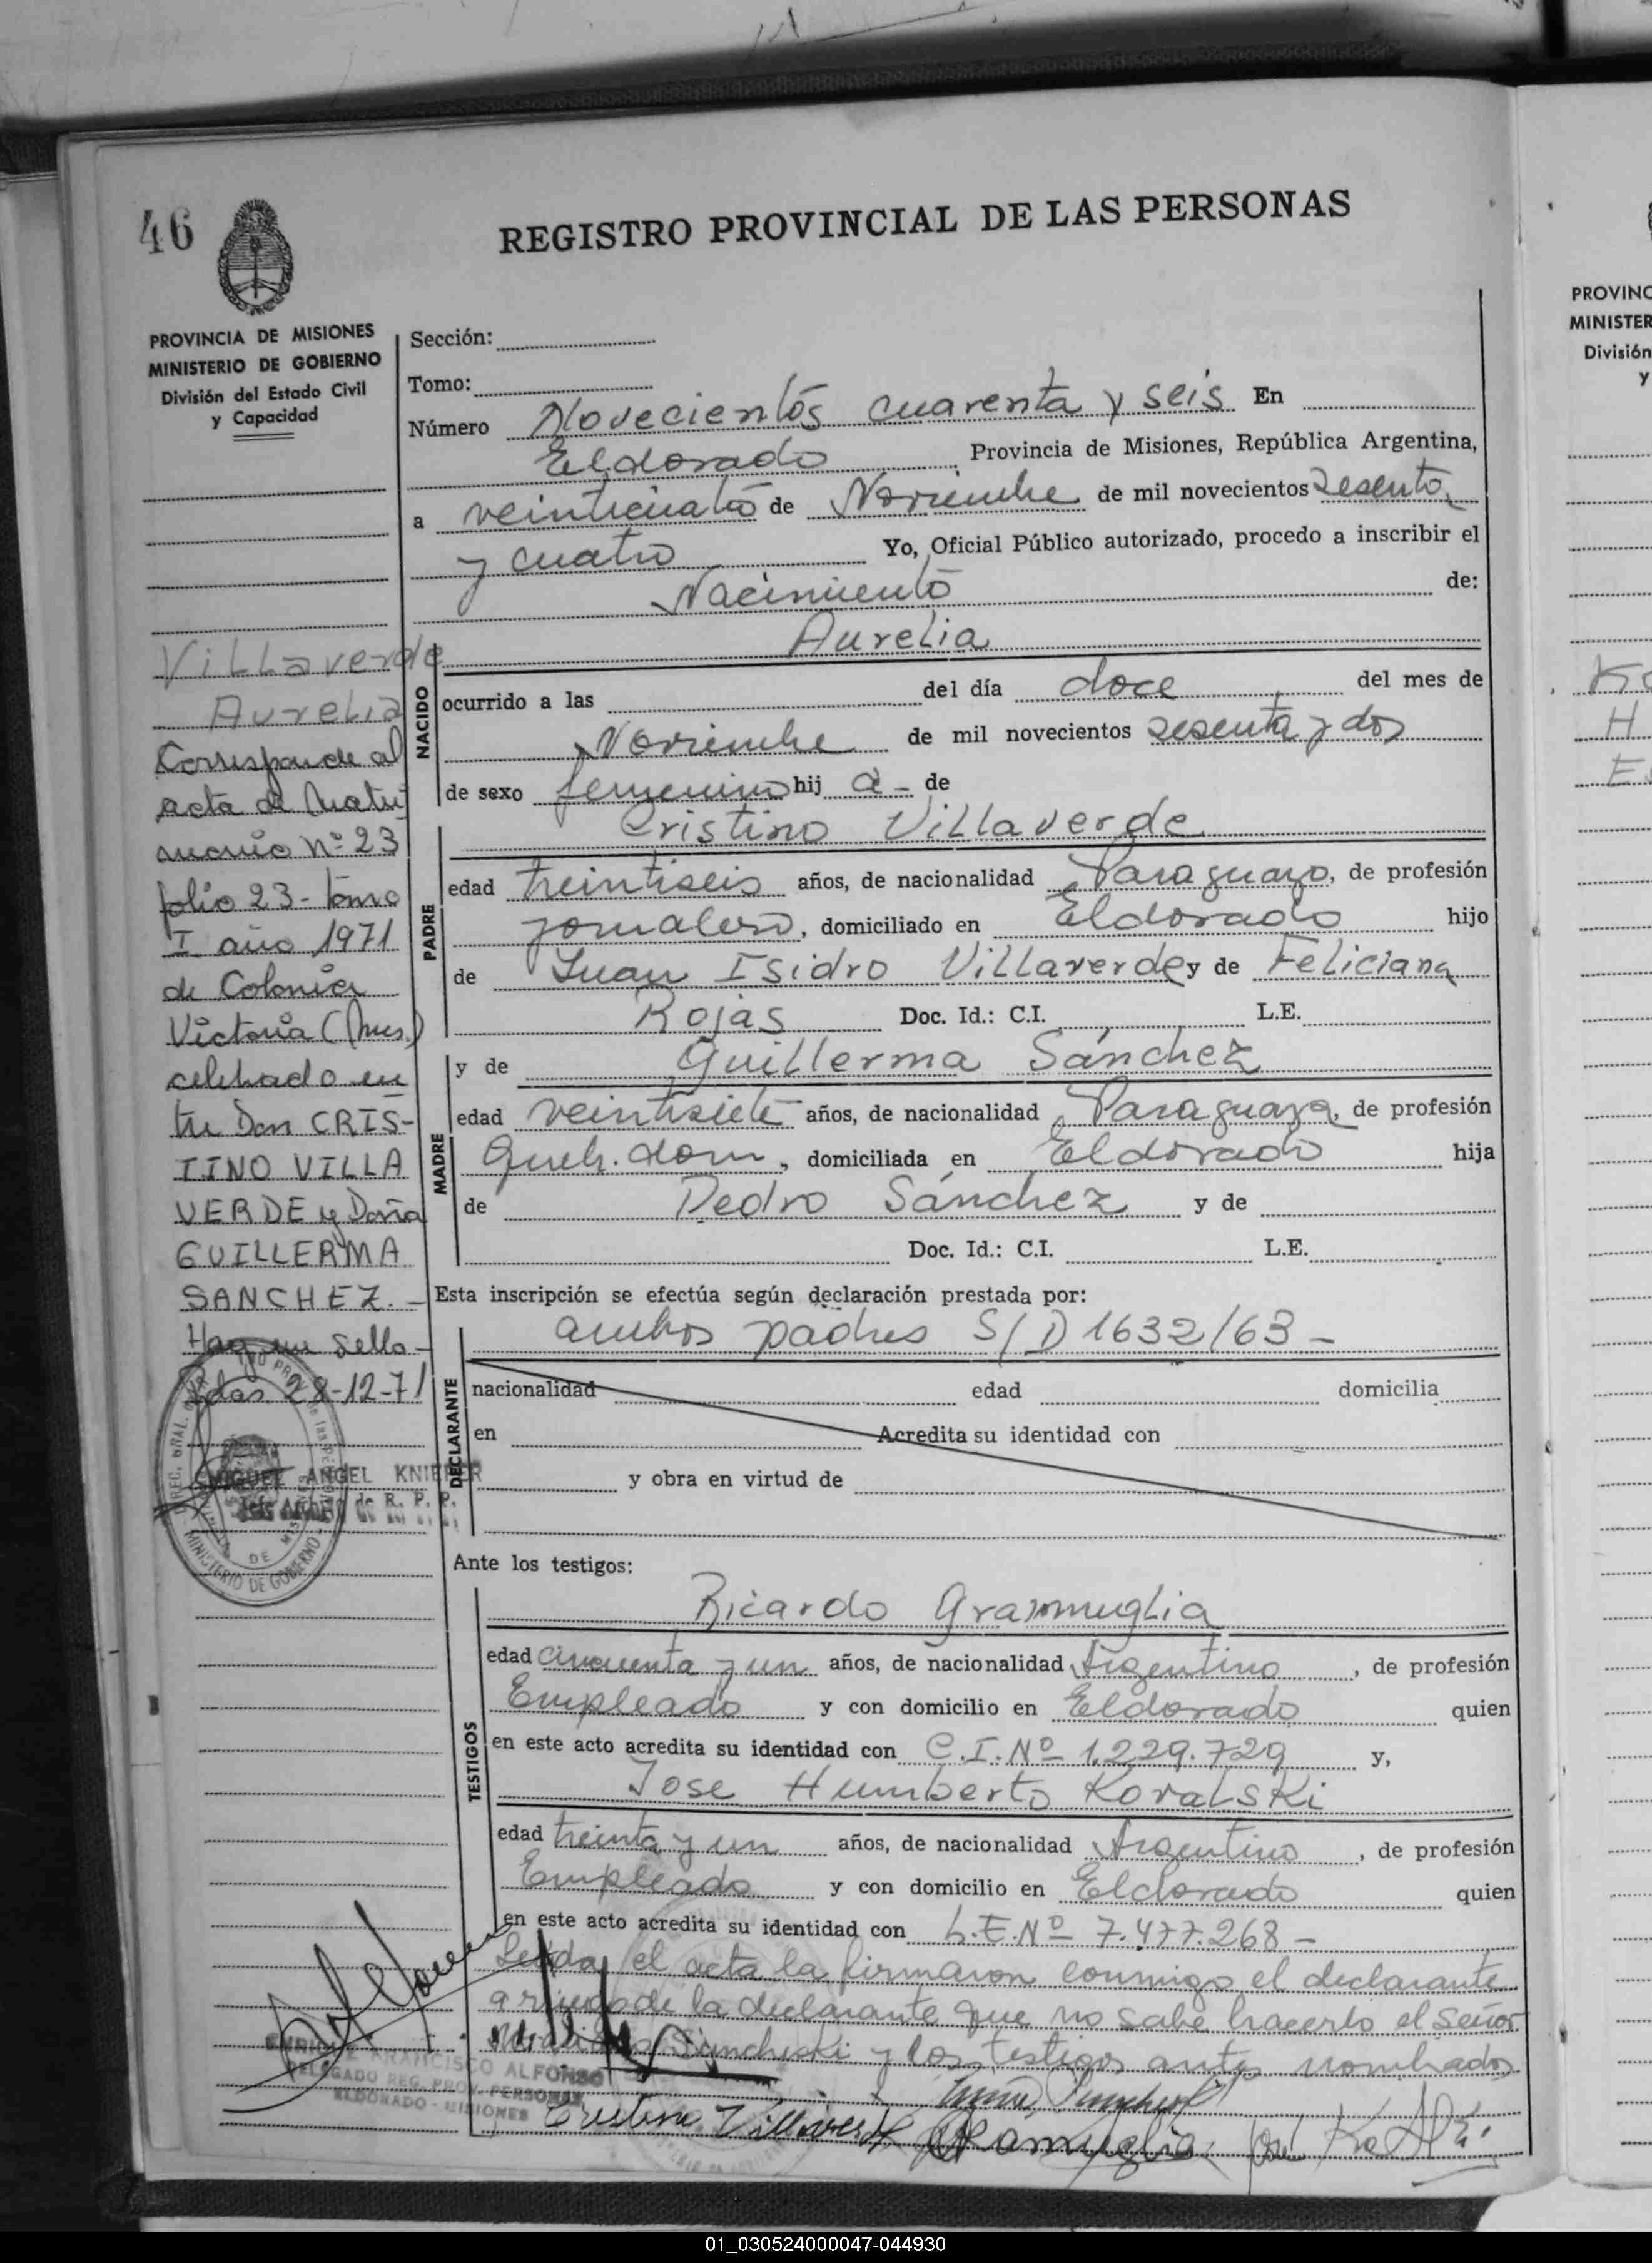 46
REGISTRO PROVINCIAL DE LAS PERSONAS
PROVINCIA DE MISIONES
MINISTERIO DE GOBIERNO
División del Estado Civil
y Capacidad
Villaverde
Aurelia
Corresponde al
acta de Matri
monio Nº 23
folio 23 - tomo
I año 1971
de Colonia
Victoria (Mnes.)
celebrado en
tre Don CRIS-
TINO VILLA
VERDE y Doña
GUILLERMA
SANCHEZ. -
Hay un sello -
Pdas. 28-12-71
MIGUEL ANGEL KNIEPER
Jefe Archivo de R. P. P.
MINISTERIO DE GOBIERNO
Sección:
Tomo:
Número Novecientos cuarenta y seis En
Eldorado Provincia de Misiones, República Argentina,
a veinticuatro de Noviembre de mil novecientos sesenta
y cuatro Yo, Oficial Público autorizado, procedo a inscribir el
Nacimiento de:
Aurelia
NACIDO
ocurrido a las del día doce del mes de
Noviembre de mil novecientos sesenta y dos
de sexo femenino hij a - de
Cristino Villaverde
PADRE
edad treintiseis años, de nacionalidad Paraguayo, de profesión
jornalero, domiciliado en Eldorado hijo
de Juan Isidro Villaverde y de Feliciana
Rojas Doc. Id.: C.I. L.E.
y de Guillerma Sánchez
MADRE
edad veintisiete años, de nacionalidad Paraguaya, de profesión
Queh. dom., domiciliada en Eldorado hija
de Pedro Sánchez y de
Doc. Id.: C.I. L.E.
Esta inscripción se efectúa según declaración prestada por:
ambos padres S/D 1632/63 -
DECLARANTE
nacionalidad edad domicilia
en Acredita su identidad con
y obra en virtud de
Ante los testigos:
Ricardo Grammuglia
TESTIGOS
edad cincuenta y un años, de nacionalidad Argentino, de profesión
Empleado y con domicilio en Eldorado quien
en este acto acredita su identidad con C.I. Nº 1.229.729 y,
Jose Humberto Kovalski
edad treinta y un años, de nacionalidad Argentino, de profesión
Empleado y con domicilio en Eldorado quien
en este acto acredita su identidad con L.E. Nº 7.477.268 -
Leida el acta la firmaron conmigo el declarante
a ruego de la declarante que no sabe hacerlo el Señor
y los testigos antes nombrados
ENRIQUE FRANCISCO ALFONSO
DELEGADO REG. PROV. PERSONAS
ELDORADO - MISIONES
Cristino Villaverde
PROVINC
MINISTER
División
y
Ko
H
E
01_030524000047-044930